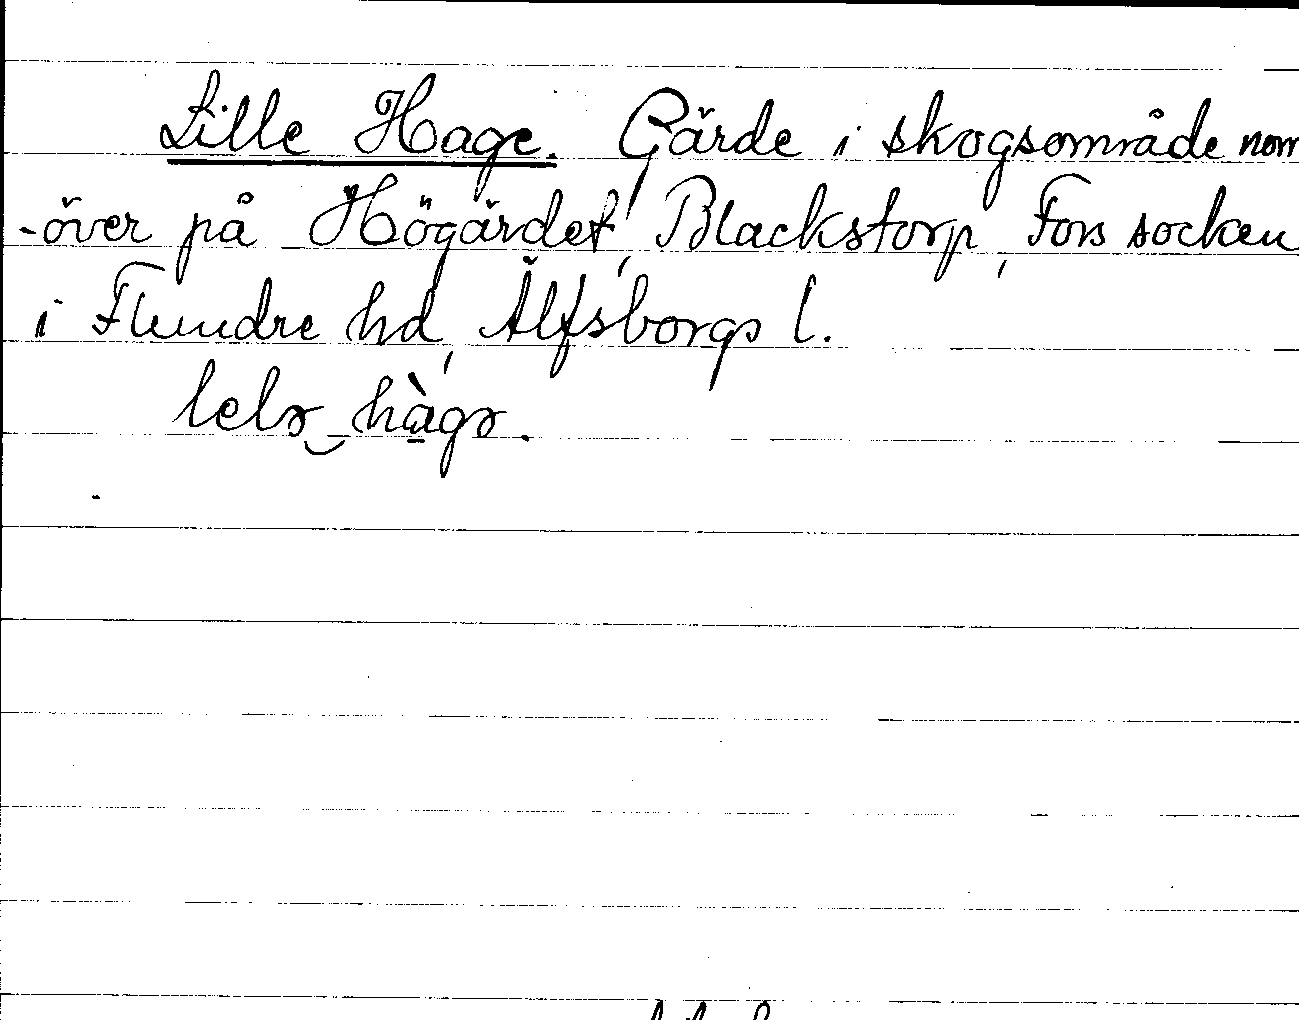 Lille Hage. Gärde i skogsområde norr
-över på Högärdet, Blackstorp, Fors socken
i Flundre hd, Älfsborgs l.
lelə‿hàgə.